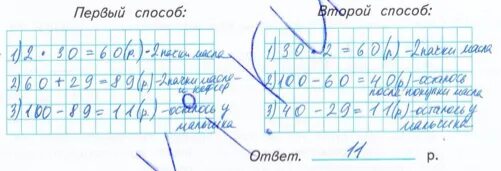 Первый способ:
1) 2 · 30 = 60 (р.) - 2 пачки масла
2) 60 + 29 = 89 (р.) - 2 пачки масла
и кефир
3) 100 - 89 = 11 (р.) - осталось у
мальчика
Второй способ:
1) 30 · 2 = 60 (р) - 2 пачки масла
2) 100 - 60 = 40 (р) - осталось
после покупки масла
3) 40 - 29 = 11 (р) - осталось у
мальчика
Ответ. 11 р.